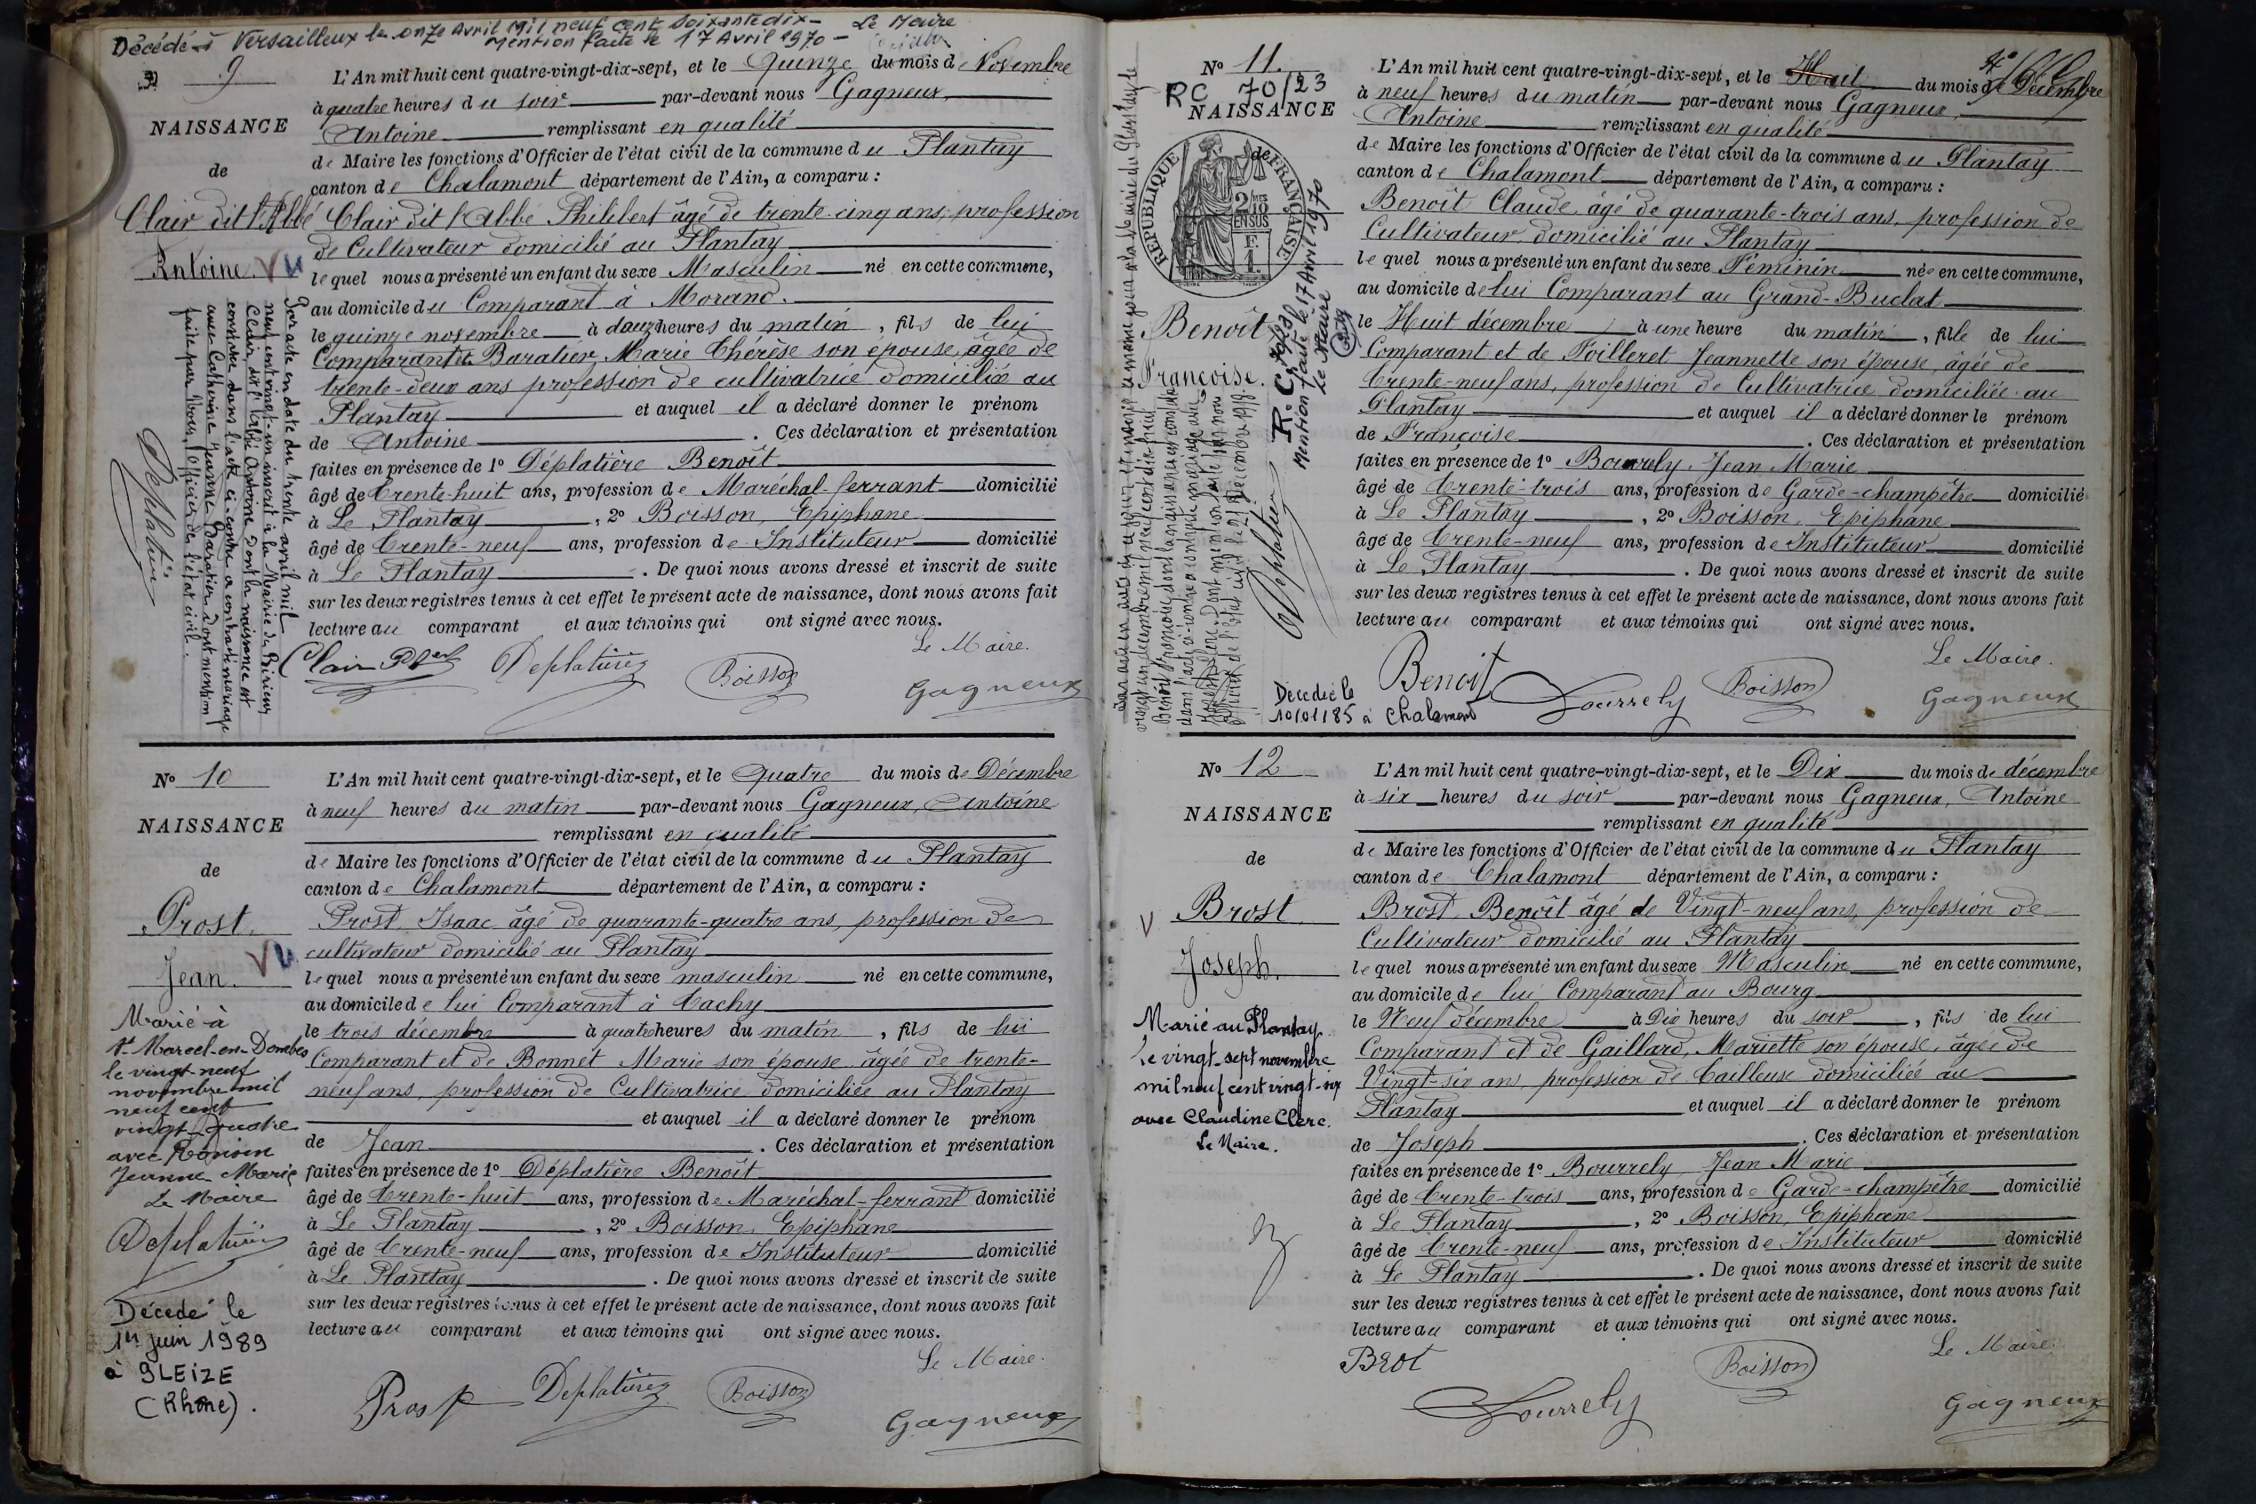 Décédé à Versailleux le onze Avril Mil neuf cent soixante dix - Le Maire
Mention faite le 17 Avril 1970 -
N° 9
NAISSANCE
de
Clair dit l'Abbé
Antoine Vu
L'An mil huit cent quatre-vingt-dix-sept, et le Quinze du mois de Novembre
à quatre heures du soir par-devant nous Gagneux,
Antoine remplissant en qualité
de Maire les fonctions d'Officier de l'état civil de la commune du Plantay
canton de Chalamont département de l'Ain, a comparu :
Clair dit l'Abbé Philibert âgé de trente-cinq ans, profession
de Cultivateur domicilié au Plantay
lequel nous a présenté un enfant du sexe Masculin né en cette commune,
au domicile du Comparant à Morand.
le quinze novembre à douze heures du matin, fils de lui
Comparant et de Baratier Marie Thérèse son épouse, âgée de
trente-deux ans profession de cultivatrice domiciliée au
Plantay et auquel il a déclaré donner le prénom
de Antoine . Ces déclaration et présentation
faites en présence de 1° Déplatière Benoît
âgé de trente-huit ans, profession de Maréchal-ferrant domicilié
à Le Plantay , 2° Boisson, Epiphane
âgé de trente-neuf ans, profession de Instituteur domicilié
à Le Plantay . De quoi nous avons dressé et inscrit de suite
sur les deux registres tenus à cet effet le présent acte de naissance, dont nous avons fait
lecture au comparant et aux témoins qui ont signé avec nous.
Le Maire.
Clair Deplatière Boisson Gagneux
Par acte en date du trente avril mil
neuf cent vingt-un inscrit à la Mairie de Birieux
Clair dit l'abbé Antoine dont la naissance est
constatée dans l'acte ci-contre a contracté mariage
avec Catherine Jeanne Baratier dont mention
faite par Nous, Officier de l'état civil.
Deplatière
N° 10
NAISSANCE
de
Prost,
Jean. Vu
Marié à
St Marcel-en-Dombes
le vingt neuf
novembre mil
neuf cent
vingt quatre
avec
Jeanne Marie
Le Maire
Deplatière
Décédé le
1er juin 1989
à GLEIZE
(Rhône).
L'An mil huit cent quatre-vingt-dix-sept, et le Quatre du mois de Décembre
à neuf heures du matin par-devant nous Gagneux, Antoine
remplissant en qualité
de Maire les fonctions d'Officier de l'état civil de la commune du Plantay
canton de Chalamont département de l'Ain, a comparu :
Prost Isaac âgé de quarante-quatre ans, profession de
cultivateur domicilié au Plantay
lequel nous a présenté un enfant du sexe masculin né en cette commune,
au domicile de lui Comparant à Cachy
le trois décembre à quatre heures du matin, fils de lui
Comparant et de Bonnet Marie son épouse âgée de trente-
neuf ans, profession de Cultivatrice domiciliée au Plantay
et auquel il a déclaré donner le prénom
de Jean . Ces déclaration et présentation
faites en présence de 1° Déplatière Benoît
âgé de trente-huit ans, profession de Maréchal-ferrant domicilié
à Le Plantay , 2° Boisson, Epiphane
âgé de trente-neuf ans, profession de Instituteur domicilié
à Le Plantay . De quoi nous avons dressé et inscrit de suite
sur les deux registres tenus à cet effet le présent acte de naissance, dont nous avons fait
lecture au comparant et aux témoins qui ont signé avec nous.
Le Maire.
Prost Deplatière Boisson Gagneux
N° 11.
RC 70/23
NAISSANCE
de
RÉPUBLIQUE FRANÇAISE
2/10 EN SUS
Benoît
Françoise.
Mention faite le 17 Avril 1970
Le Maire
Deplatière
Décédée le
10/01/85 à Chalamont
L'An mil huit cent quatre-vingt-dix-sept, et le Huit du mois de Décembre
à neuf heures du matin par-devant nous Gagneux,
Antoine remplissant en qualité
de Maire les fonctions d'Officier de l'état civil de la commune du Plantay
canton de Chalamont département de l'Ain, a comparu :
Benoît Claude, âgé de quarante-trois ans, profession de
Cultivateur, domicilié au Plantay
lequel nous a présenté un enfant du sexe Féminin née en cette commune,
au domicile de lui Comparant au Grand-Buclat
le Huit décembre à une heure du matin, fille de lui
Comparant et de Poilleret Jeannette son épouse, âgée de
trente-neuf ans, profession de Cultivatrice domiciliée au
Plantay et auquel il a déclaré donner le prénom
de Françoise . Ces déclaration et présentation
faites en présence de 1° Bourrely, Jean Marie
âgé de trente-trois ans, profession de Garde-champêtre domicilié
à Le Plantay , 2° Boisson, Epiphane
âgé de trente-neuf ans, profession de Instituteur domicilié
à Le Plantay . De quoi nous avons dressé et inscrit de suite
sur les deux registres tenus à cet effet le présent acte de naissance, dont nous avons fait
lecture au comparant et aux témoins qui ont signé avec nous.
Le Maire.
Benoit Bourrely Boisson Gagneux
N° 12
NAISSANCE
de
Brost
Joseph.
Marié au Plantay
le vingt-sept novembre
mil neuf cent vingt-six
avec Claudine Clerc.
Le Maire.
L'An mil huit cent quatre-vingt-dix-sept, et le Dix du mois de décembre
à six heures du soir par-devant nous Gagneux, Antoine
remplissant en qualité
de Maire les fonctions d'Officier de l'état civil de la commune du Plantay
canton de Chalamont département de l'Ain, a comparu :
Brost Benoît âgé de Vingt-neuf ans, profession de
Cultivateur domicilié au Plantay
lequel nous a présenté un enfant du sexe Masculin né en cette commune,
au domicile de lui Comparant au Bourg
le Neuf décembre à Dix heures du soir, fils de lui
Comparant et de Gaillard, Mariette son épouse, âgée de
Vingt-six ans, profession de Tailleuse domiciliée au
Plantay et auquel il a déclaré donner le prénom
de Joseph . Ces déclaration et présentation
faites en présence de 1° Bourrely Jean Marie
âgé de trente-trois ans, profession de Garde-champêtre domicilié
à Le Plantay , 2° Boisson, Epiphane
âgé de trente-neuf ans, profession de Instituteur domicilié
à Le Plantay . De quoi nous avons dressé et inscrit de suite
sur les deux registres tenus à cet effet le présent acte de naissance, dont nous avons fait
lecture au comparant et aux témoins qui ont signé avec nous.
Le Maire.
Brot Bourrely Boisson Gagneux